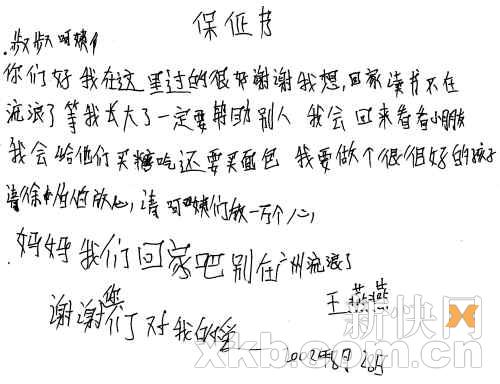 保证书
叔叔阿姨们
你们好 我在这里过的很好谢谢我想,回家读书不在
流浪了等我长大了一定要帮助别人 我会回来看看小朋友
我会给他们买糖吃还要买面包 我要做个很很好的孩子
请徐伯伯放心,请阿姨们放一万个心,
妈妈我们回家吧别在广州流浪了
王燕燕
谢谢您们了对我的爱
2002年8月26日
新快网
xkb.com.cn